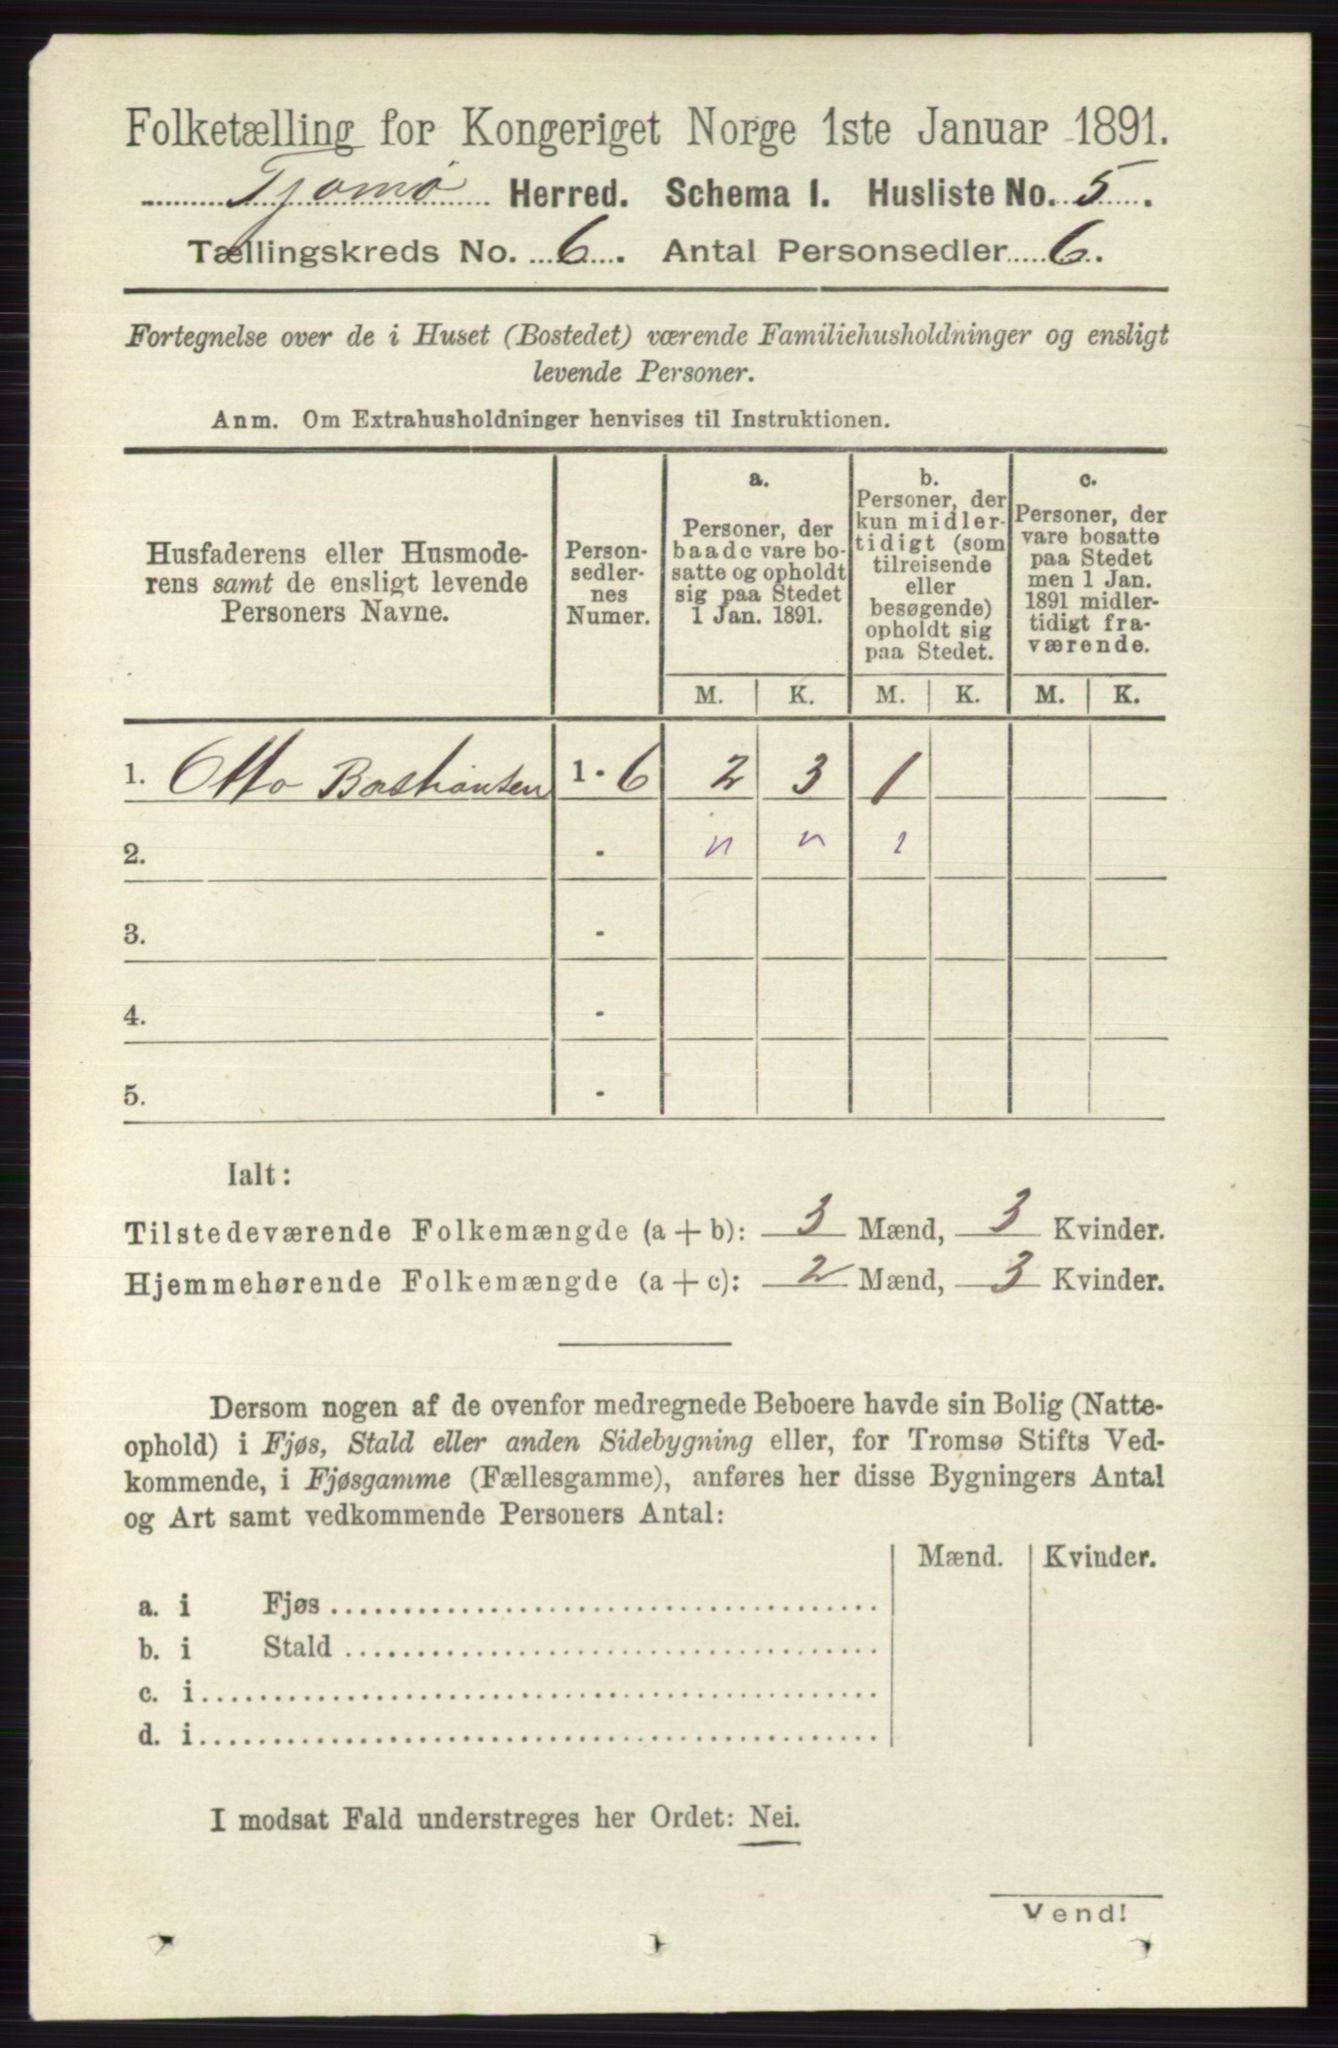 Folketælling for Kongeriget Norge 1ste Januar 1891.
Tjømø Herred. Schema I. Husliste No. 5.
Tællingskreds No. 6. Antal Personsedler 6.
Fortegnelse over de i Huset (Bostedet) værende Familiehusholdninger og ensligt
levende Personer.
Anm. Om Extrahusholdninger henvises til Instruktionen.
Husfaderens eller Husmode-
rens samt de ensligt levende
Personers Navne.
Person-
sedler-
nes
Numer.
a.
Personer, der
baade vare bo-
satte og opholdt
sig paa Stedet
1 Jan. 1891.
b.
Personer, der
kun midler-
tidigt (som
tilreisende
eller
besøgende)
opholdt sig
paa Stedet.
c.
Personer, der
vare bosatte
paa Stedet
men 1 Jan.
1891 midler-
tidigt fra-
værende.
M. K. M. K. M. K.
1. Otto Bastiansen 1 - 6 2 3 1
2. - n n 1
3. -
4. -
5. -
Ialt:
Tilstedeværende Folkemængde (a + b): 3 Mænd, 3 Kvinder.
Hjemmehørende Folkemængde (a + c): 2 Mænd, 3 Kvinder.
Dersom nogen af de ovenfor medregnede Beboere havde sin Bolig (Natte-
ophold) i Fjøs, Stald eller anden Sidebygning eller, for Tromsø Stifts Ved-
kommende, i Fjøsgamme (Fællesgamme), anføres her disse Bygningers Antal
og Art samt vedkommende Personers Antal:
Mænd. Kvinder.
a. i Fjøs
b. i Stald
c. i
d. i
I modsat Fald understreges her Ordet: Nei.
Vend!